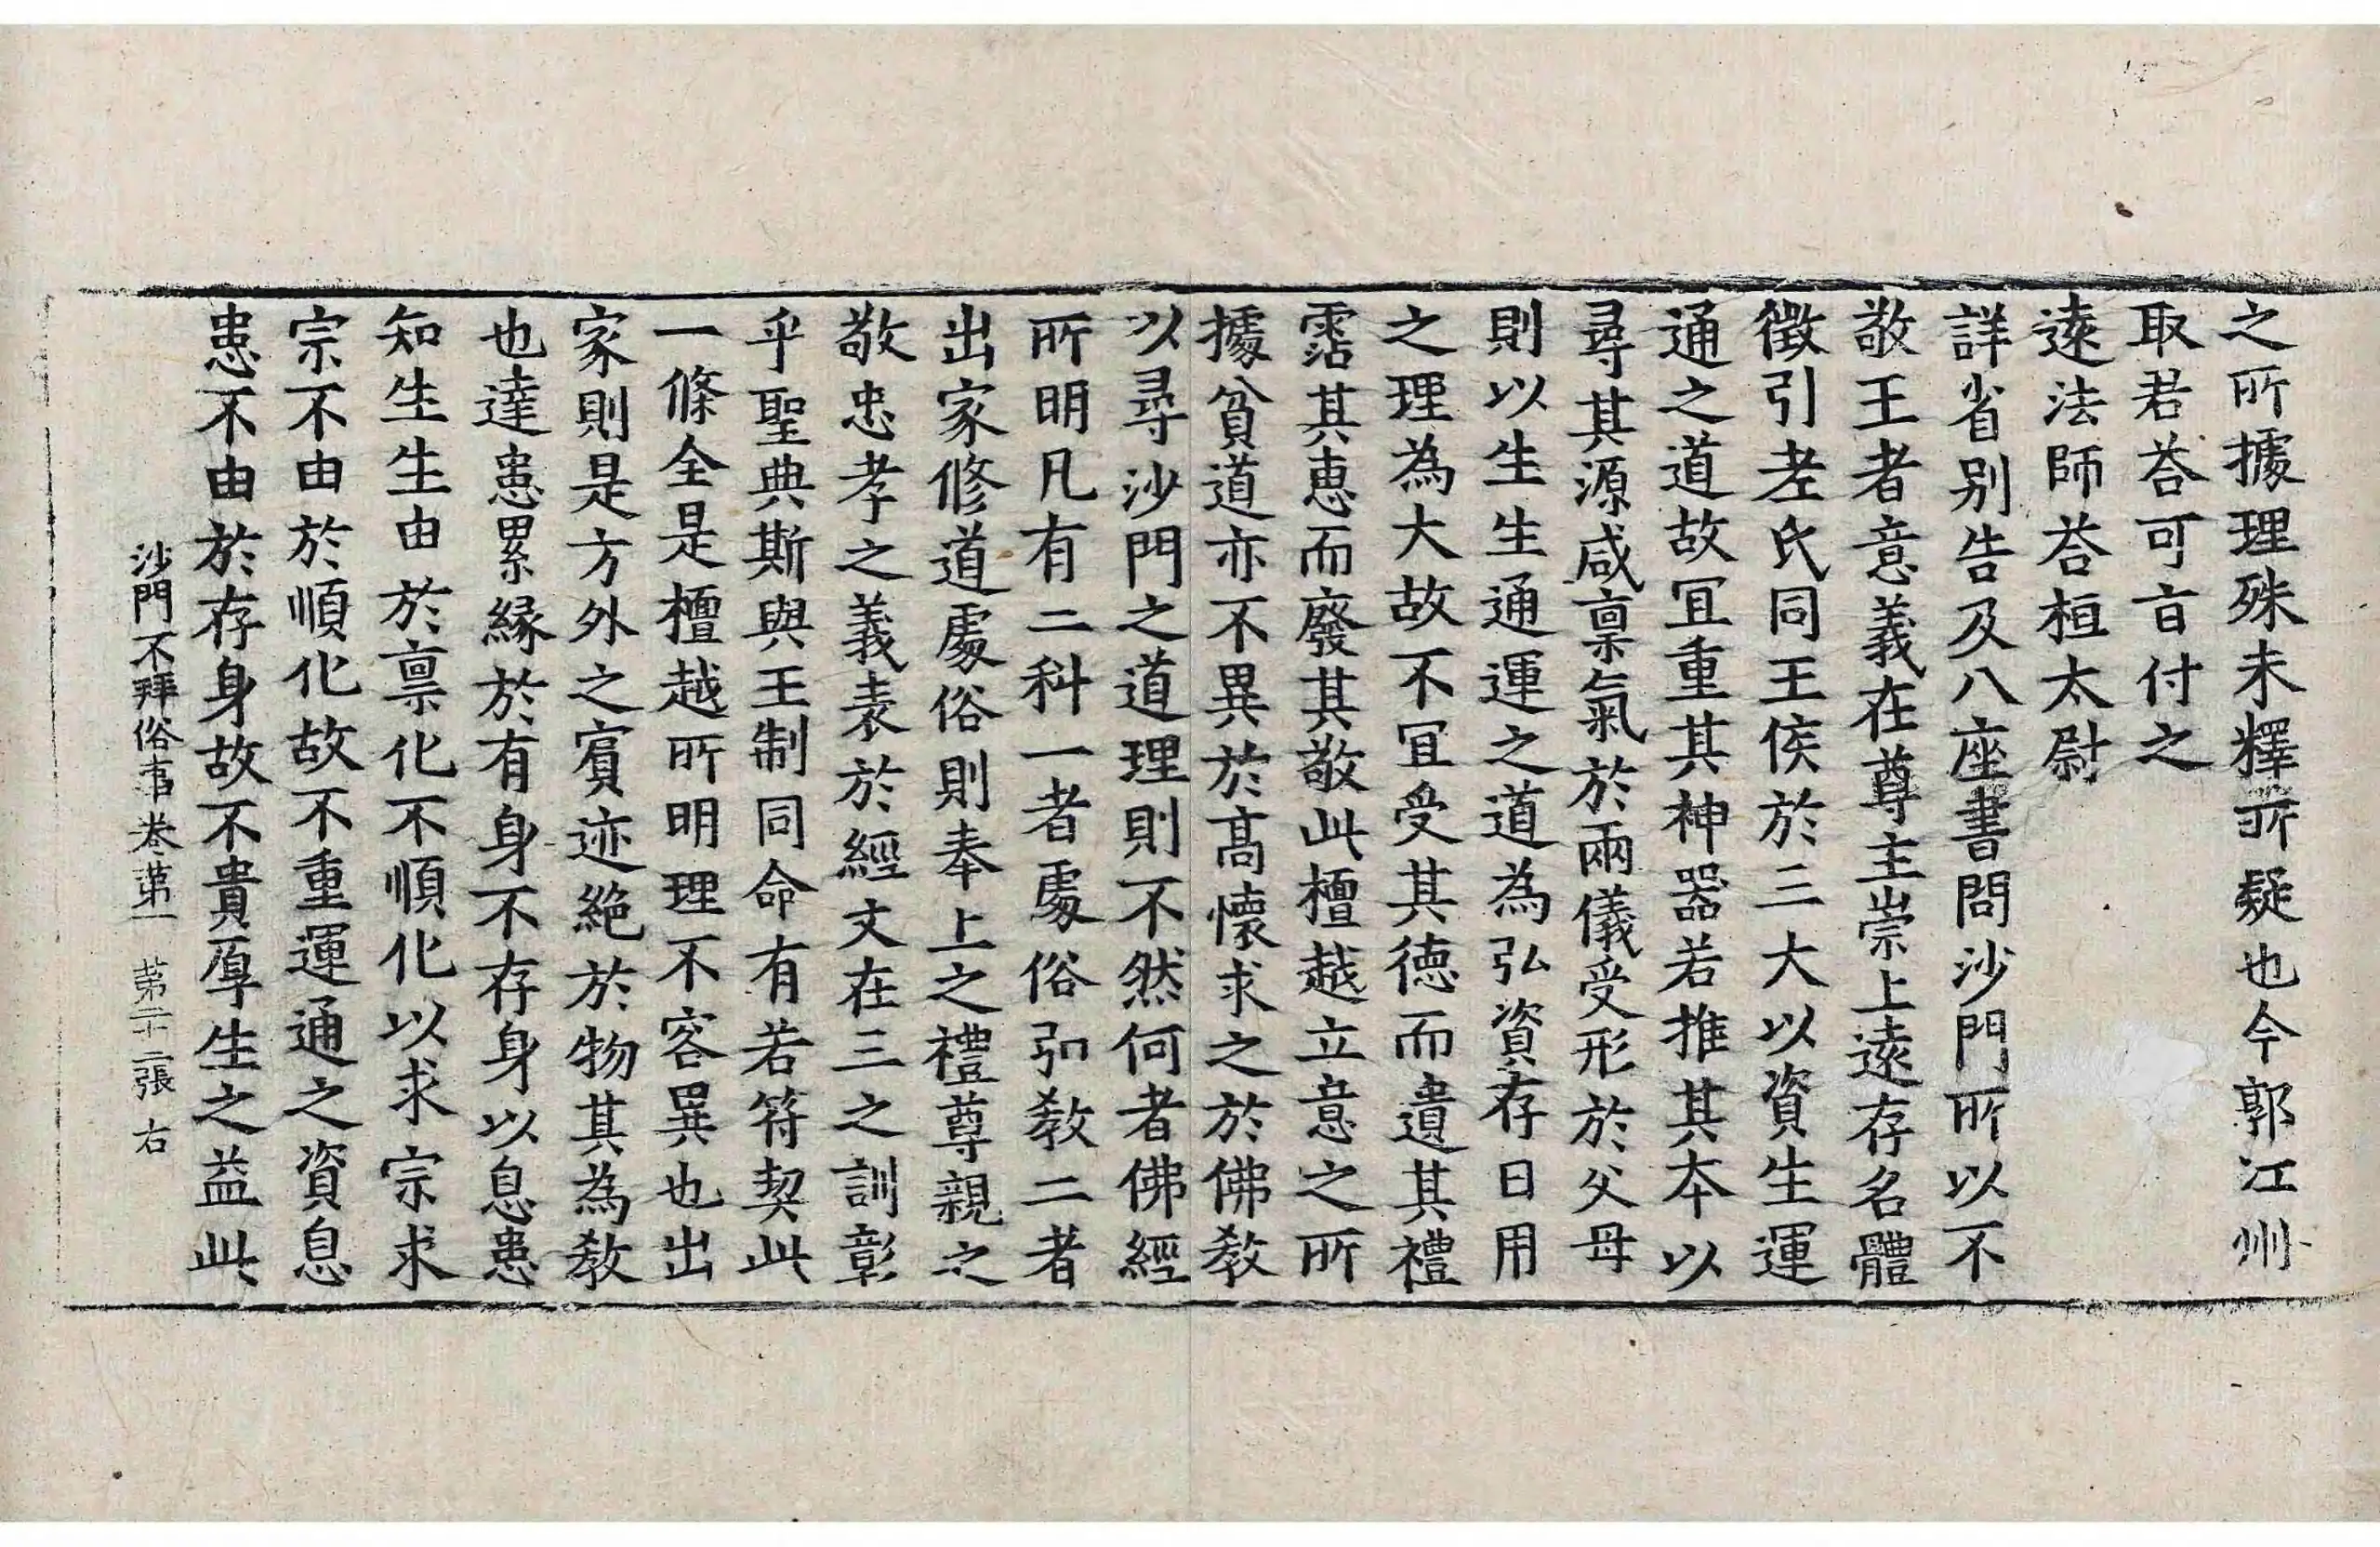 之所據理殊未釋所疑也今郭江州
取君荅可旨付之
遠法師荅桓太尉
詳省别告及八座書問沙門所以不
敬王者意義在尊主崇上遠存名體
徴引老氏同王侯於三大以資生運
通之道故冝重其神器若推其本以
尋其源咸禀氣於兩儀受形於父母
則以生生通運之道為弘資存日用
之理為大故不冝受其德而遺其禮
霑其恵而廢其敬此檀越立意之所
據貧道亦不異於髙懷求之於佛教
以尋沙門之道理則不然何者佛經
所明凡有二科一者處俗弘教二者
出家修道處俗則奉上之禮尊親之
敬忠孝之義表於經文在三之訓彰
乎聖典斯與王制同命有若符契此
一條全是檀越所明理不容異也出
家則是方外之賓迹絶於物其為教
也達患累緣於有身不存身以息患
知生生由於禀化不順化以求宗求
宗不由於順化故不重運通之資息
患不由於存身故不貴厚生之益此
沙門不拜俗事卷第一 第二十二張 右